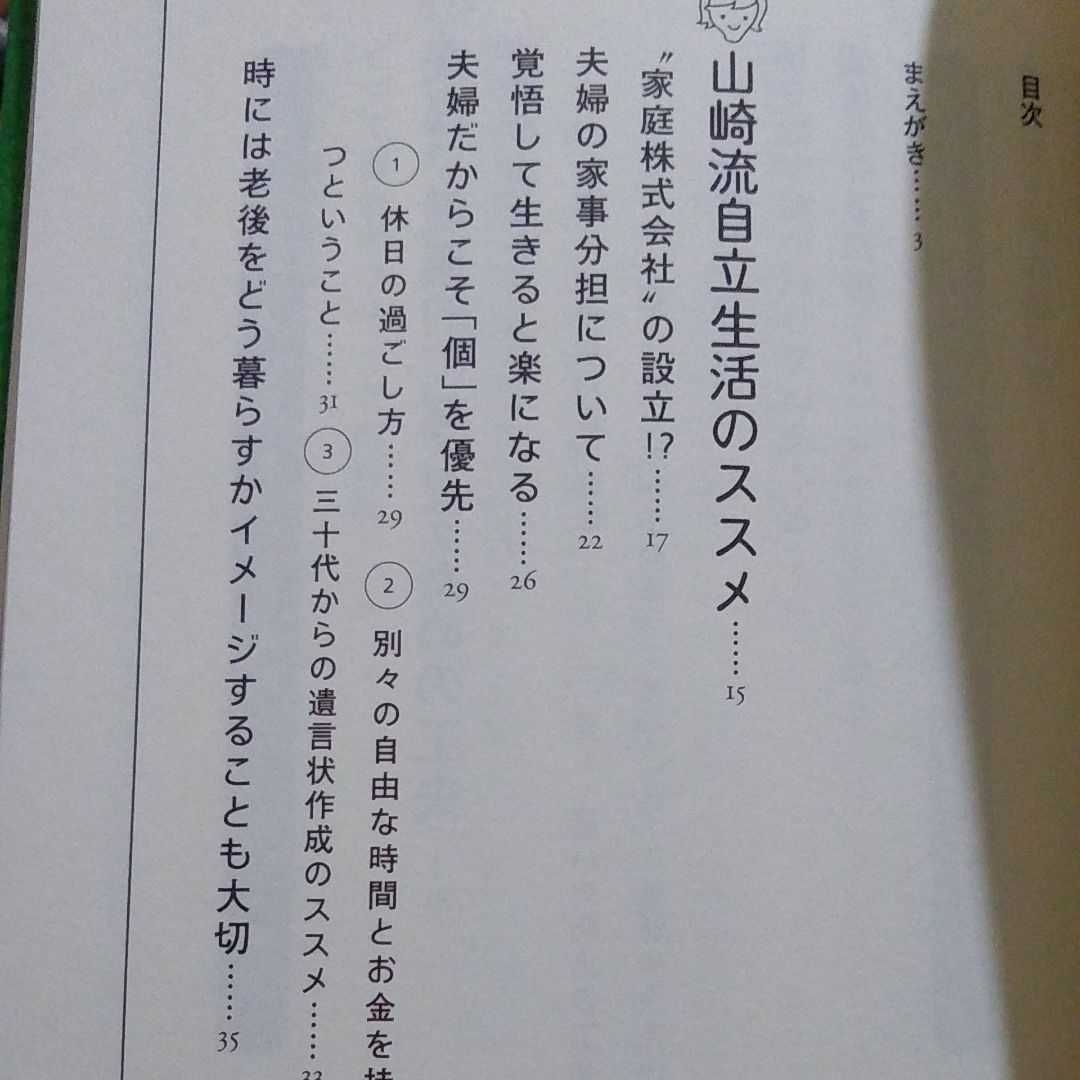 目次
まえがき……3
山崎流自立生活のススメ……15
〝家庭株式会社〟の設立!?……17
夫婦の家事分担について……22
覚悟して生きると楽になる……26
夫婦だからこそ「個」を優先……29
① 休日の過ごし方……29 ② 別々の自由な時間とお金を持
つということ……31 ③ 三十代からの遺言状作成のススメ……33
時には老後をどう暮らすかイメージすることも大切……35